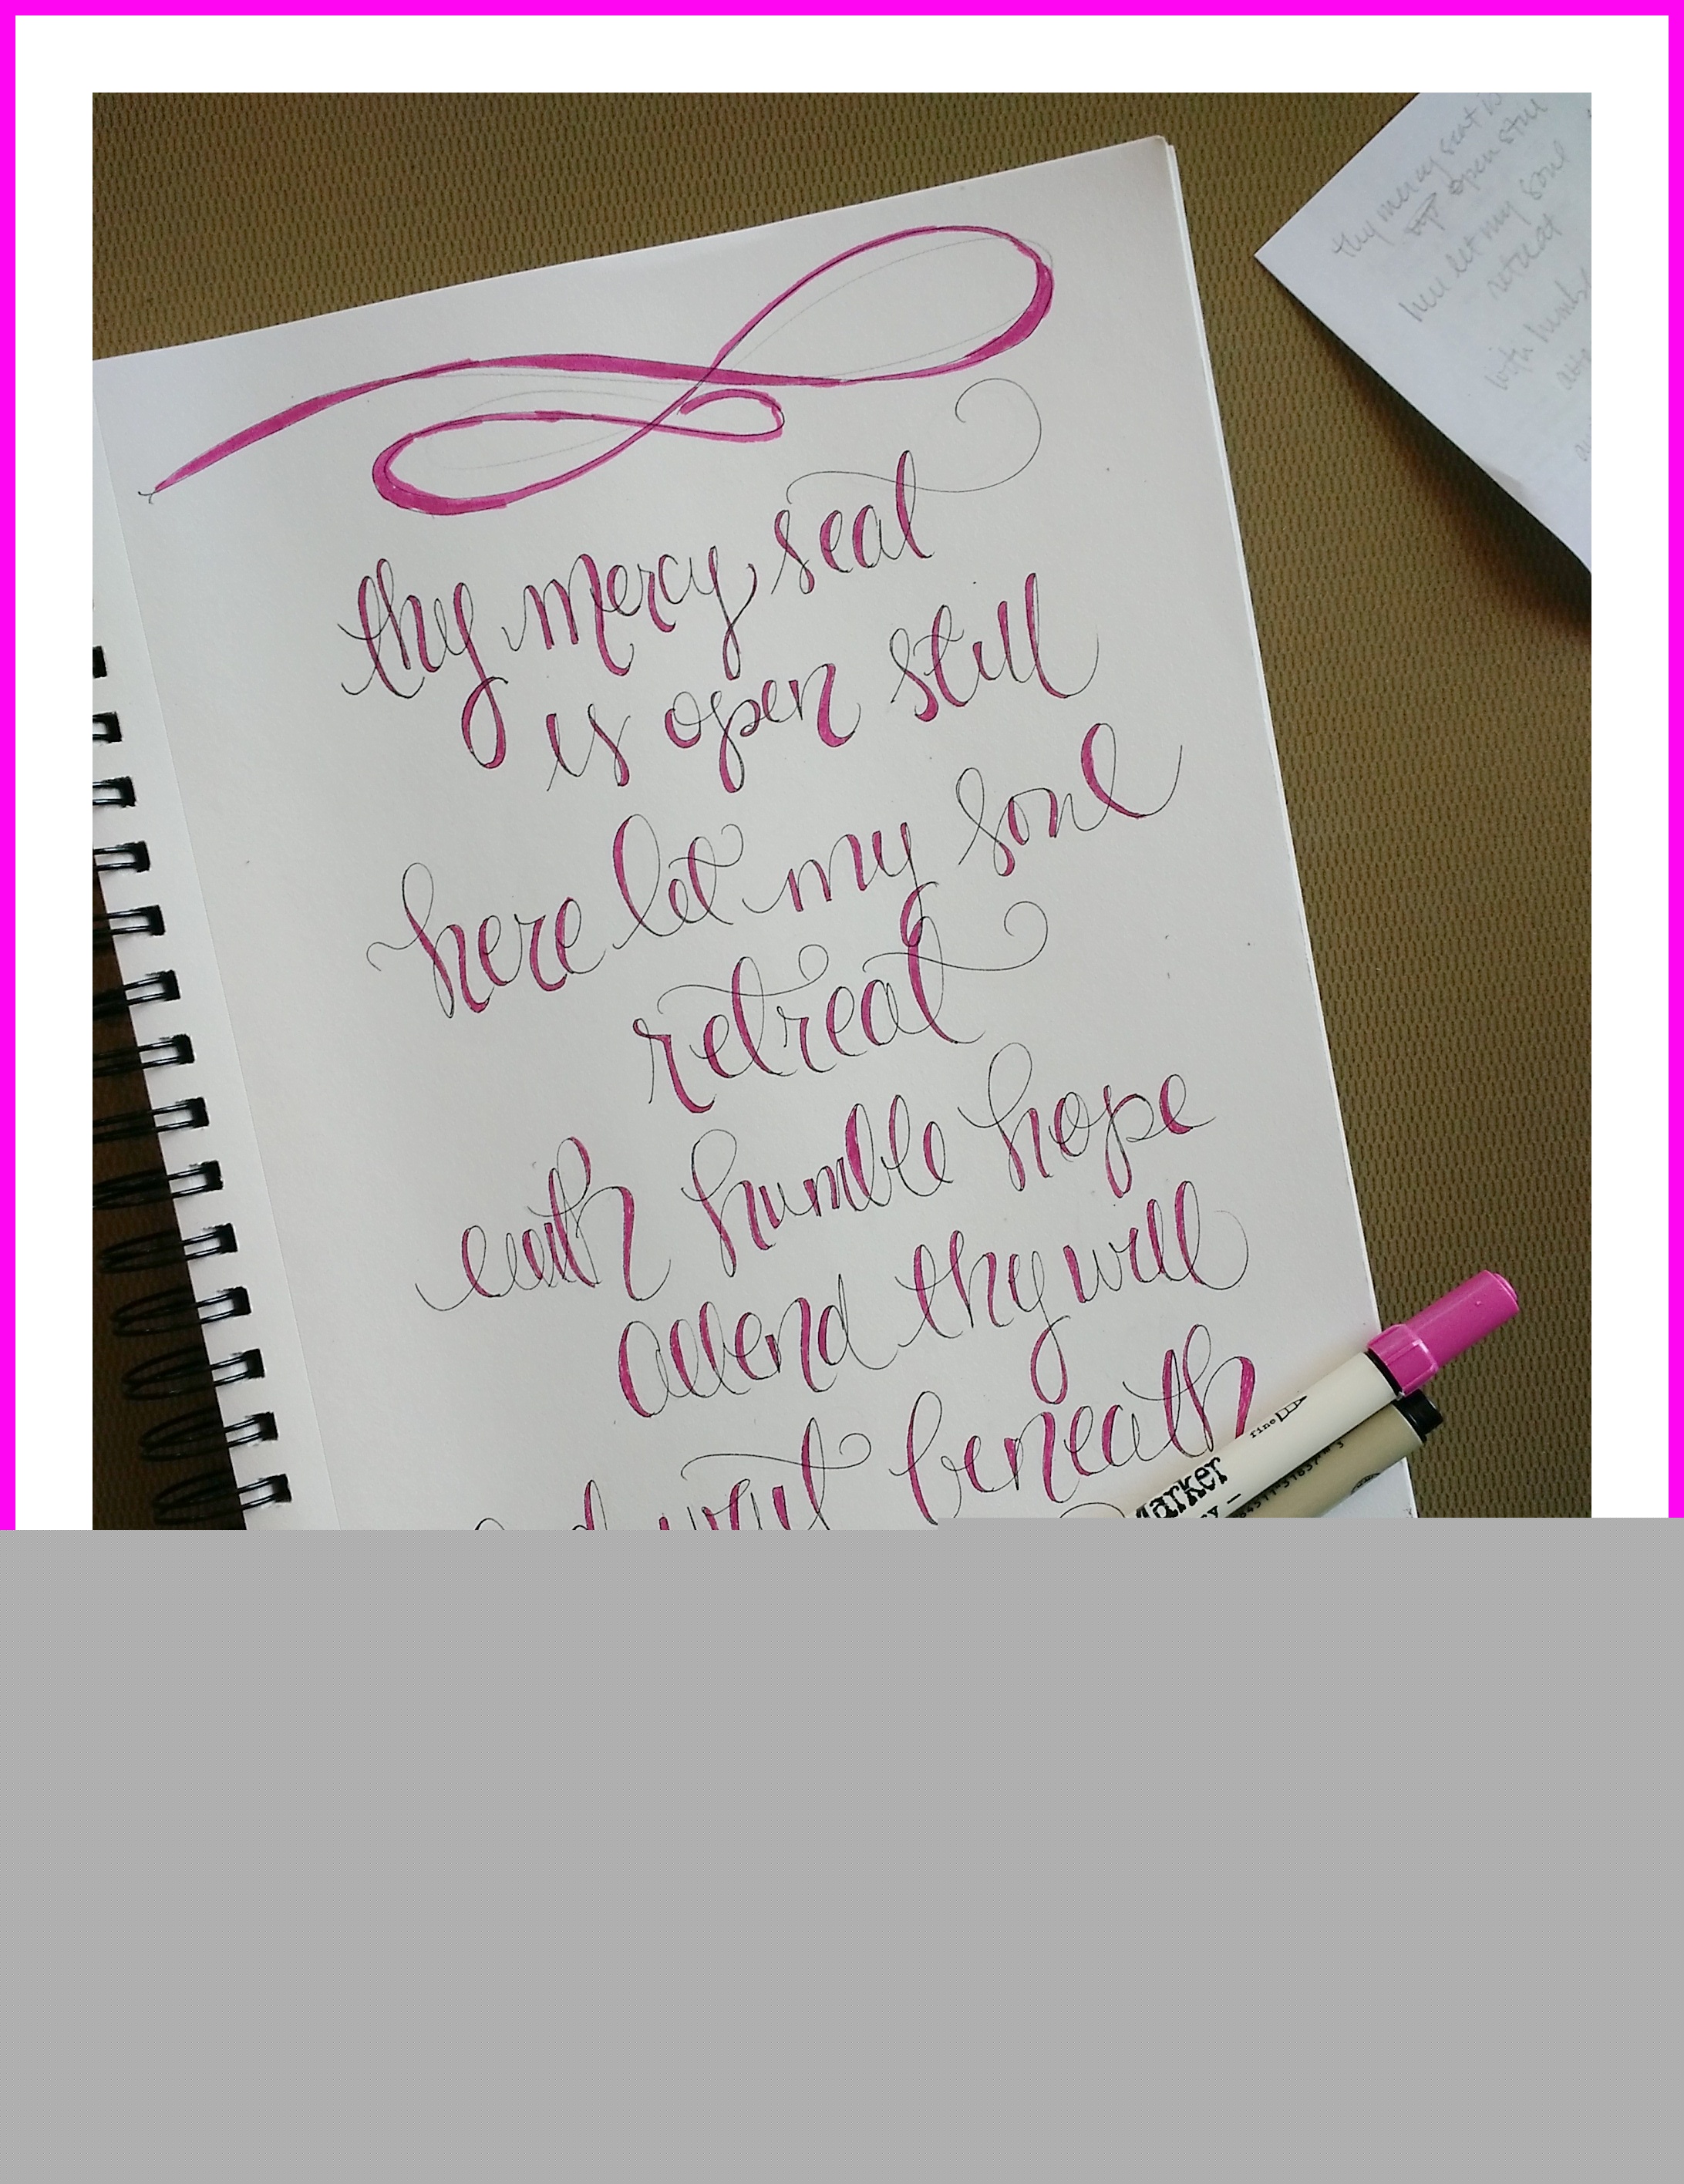 thy mercy seat
is open still
here let my soul
retreat
with humble hope
attend thy will
wait beneath
thy mercy seat is
open still
here let my soul
retreat
with humbl
fine
Marker